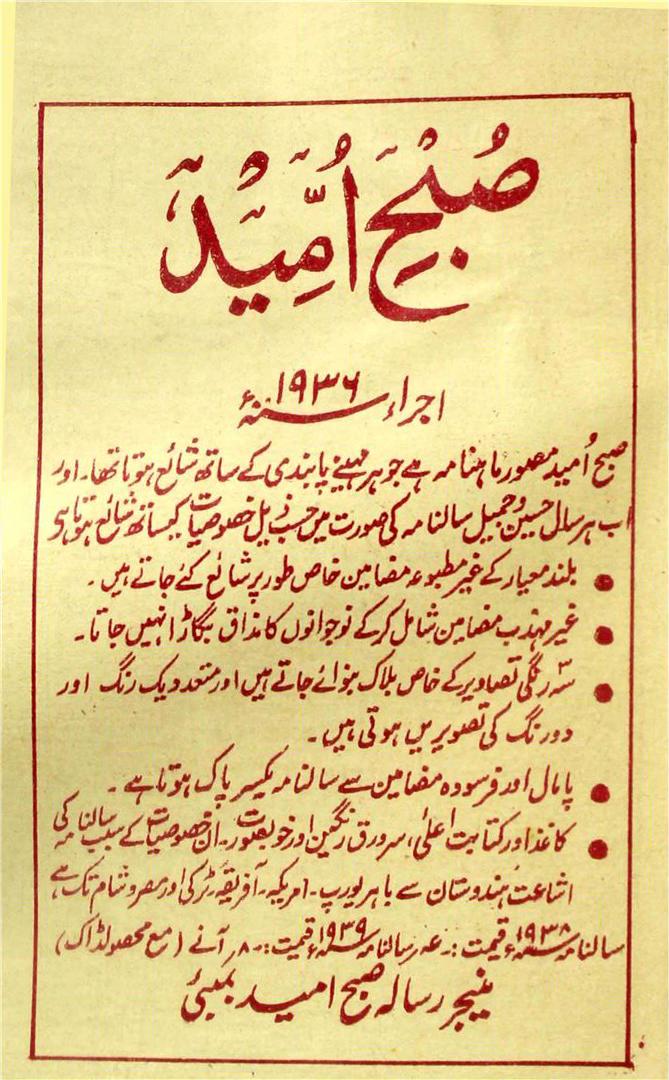 صُبْحِ اُمِّیْدْ
اجراء سنہ ۱۹۳۶ء
صبح اُمید مصور ماہنامہ ہے جو ہر مہینے پابندی کے ساتھ شائع ہوتا تھا۔ اور
اب ہر سال حسین و جمیل سالنامہ کی صورت میں حسب ذیل خصوصیات کیساتھ شائع ہوتا ہی
● بلند معیار کے غیر مطبوعہ مضامین خاص طور پر شائع کئے جاتے ہیں۔
● غیر مہذب مضامین شامل کر کے نوجوانوں کا مذاق بگاڑا نہیں جاتا۔
● سہ رنگی تصاویر کے خاص بلاک بنوائے جاتے ہیں اور متعدد یک رنگ اور
دو رنگ کی تصویریں ہوتی ہیں۔
● پامال اور فرسودہ مضامین سے سالنامہ یکسر پاک ہوتا ہے۔
● کاغذ اور کتابت اعلیٰ، سرورق رنگین اور خوبصورت۔ ان خصوصیات کے سبب سالنامہ کی
اشاعت ہندوستان سے باہر یورپ۔ امریکہ۔ آفریقہ۔ ٹرکی اور مصر و شام تک ہے
سالنامہ سنہ ۱۹۳۸ء قیمت:۔ عہ سالنامہ سنہ ۱۹۳۹ء قیمت:۔ ۸؍ آنے (مع محصولڈاک)
منیجر رسالہ صبح امید بمبئی